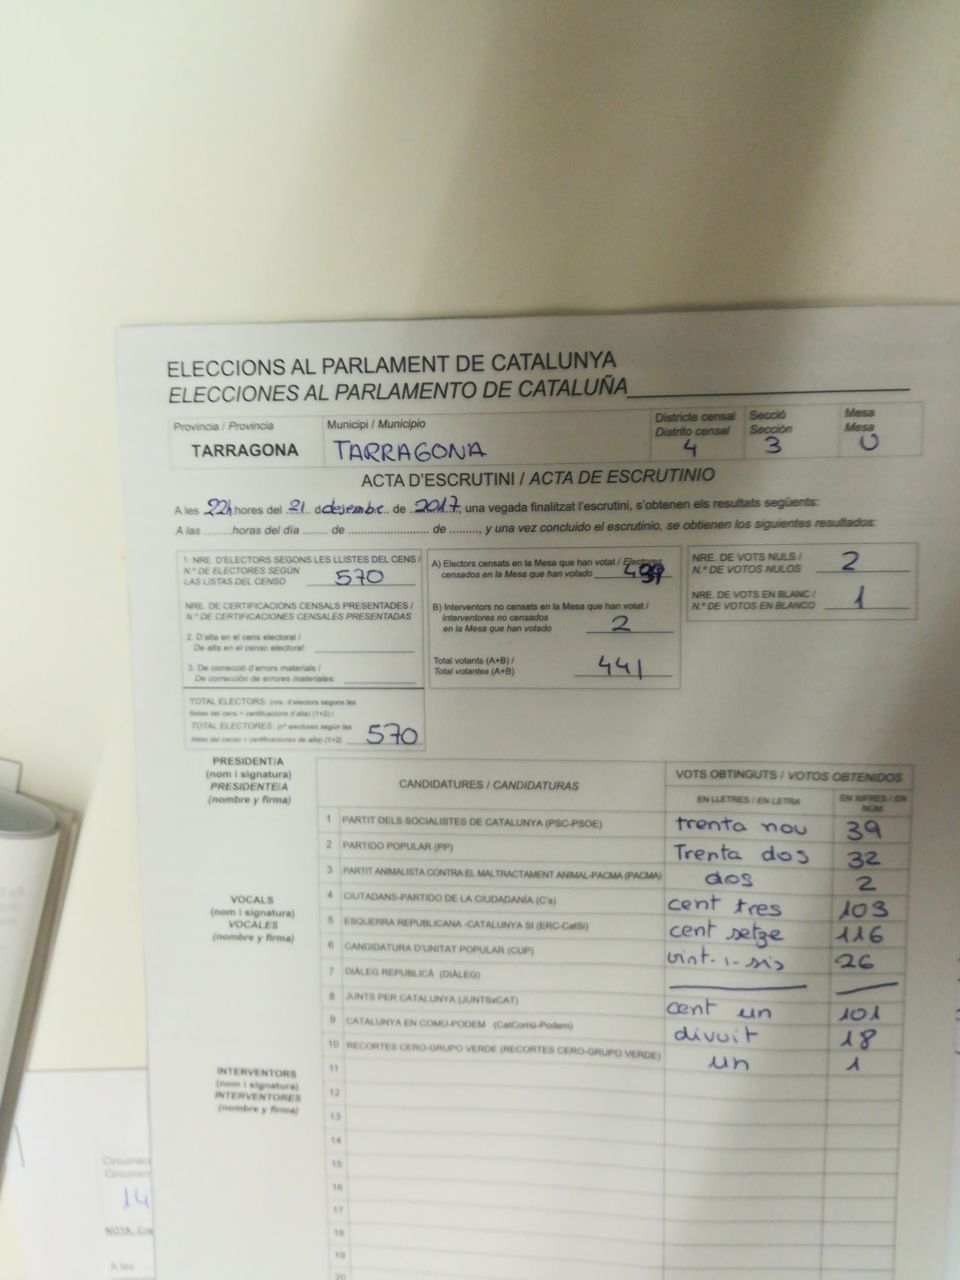 ELECCIONS AL PARLAMENT DE CATALUNYA
ELECCIONES AL PARLAMENTO DE CATALUÑA
Província / Provincia
TARRAGONA
Municipi / Municipio
TARRAGONA
Districte censal
Distrito censal
4
Secció
Sección
3
Mesa
Mesa
U
ACTA D'ESCRUTINI / ACTA DE ESCRUTINIO
A les 22h hores del 21 d desembre de 2017, una vegada finalitzat l'escrutini, s'obtenen els resultats següents:
A las ........ horas del día ..... de ..................... de ........, y una vez concluido el escrutinio, se obtienen los siguientes resultados:
1. NRE. D'ELECTORS SEGONS LES LLISTES DEL CENS /
N.º DE ELECTORES SEGÚN
LAS LISTAS DEL CENSO 570
NRE. DE CERTIFICACIONS CENSALS PRESENTADES /
N.º DE CERTIFICACIONES CENSALES PRESENTADAS
2. D'alta en el cens electoral /
De alta en el censo electoral:
3. De correcció d'errors materials /
De corrección de errores materiales:
TOTAL ELECTORS: (nre. d'electors segons les
llistes del cens + certificacions d'alta) (1+2) /
TOTAL ELECTORES: (nº electores según las
listas del censo + certificaciones de alta) (1+2) 570
A) Electors censats en la Mesa que han votat / Electores
censados en la Mesa que han votado
B) Interventors no censats en la Mesa que han votat /
Interventores no censados
en la Mesa que han votado 2
Total votants (A+B) /
Total votantes (A+B) 441
NRE. DE VOTS NULS /
N.º DE VOTOS NULOS 2
NRE. DE VOTS EN BLANC /
N.º DE VOTOS EN BLANCO 1
PRESIDENT/A
(nom i signatura)
PRESIDENTE/A
(nombre y firma)
VOCALS
(nom i signatura)
VOCALES
(nombre y firma)
INTERVENTORS
(nom i signatura)
INTERVENTORES
(nombre y firma)
CANDIDATURES / CANDIDATURAS
VOTS OBTINGUTS / VOTOS OBTENIDOS
EN LLETRES / EN LETRA
EN XIFRES / EN
NÚM.
1 PARTIT DELS SOCIALISTES DE CATALUNYA (PSC-PSOE) trenta nou 39
2 PARTIDO POPULAR (PP) Trenta dos 32
3 PARTIT ANIMALISTA CONTRA EL MALTRACTAMENT ANIMAL-PACMA (PACMA) dos 2
4 CIUTADANS-PARTIDO DE LA CIUDADANÍA (C's) cent tres 103
5 ESQUERRA REPUBLICANA -CATALUNYA SÍ (ERC-CatSí) cent setze 116
6 CANDIDATURA D'UNITAT POPULAR (CUP) vint-i-sis 26
7 DIÀLEG REPUBLICÀ (DIÀLEG)
8 JUNTS PER CATALUNYA (JUNTSxCAT) cent un 101
9 CATALUNYA EN COMÚ-PODEM (CatComú-Podem) divuit 18
10 RECORTES CERO-GRUPO VERDE (RECORTES CERO-GRUPO VERDE) un 1
11
12
13
14
15
16
17
18
19
20
14
NOTA.
A les